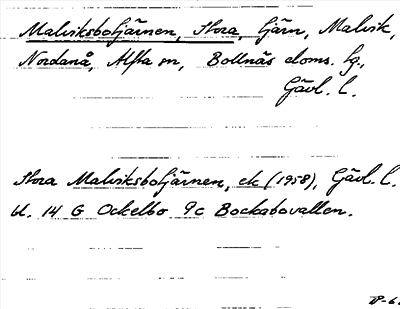 Malviksbotjärnen, Stora, tjärn, Malvik,
Nordanå, Alfta sn, Bollnäs doms. hg,
Gävl. l.
Stora Malviksbotjärnen, ek (1958), Gävl. l.
bl. 14 G Ockelbo 9c Bockabovallen.